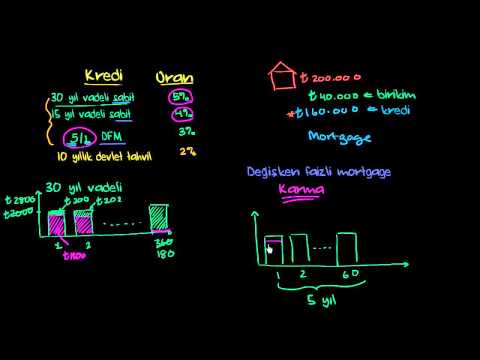 Kredi Oran
30 yıl vadeli sabit 5%
15 yıl vadeli sabit 4%
5/1 DFM 3%
10 yıllık devlet tahvil 2%
30 yıl vadeli
₺2800
₺2000
₺200 ₺202
1 2 360
180
₺200.000
₺40.000 = birikim
*₺160.000 = kredi
Mortgage
Değişken faizli mortgage
Karma
1 2 60
5 yıl